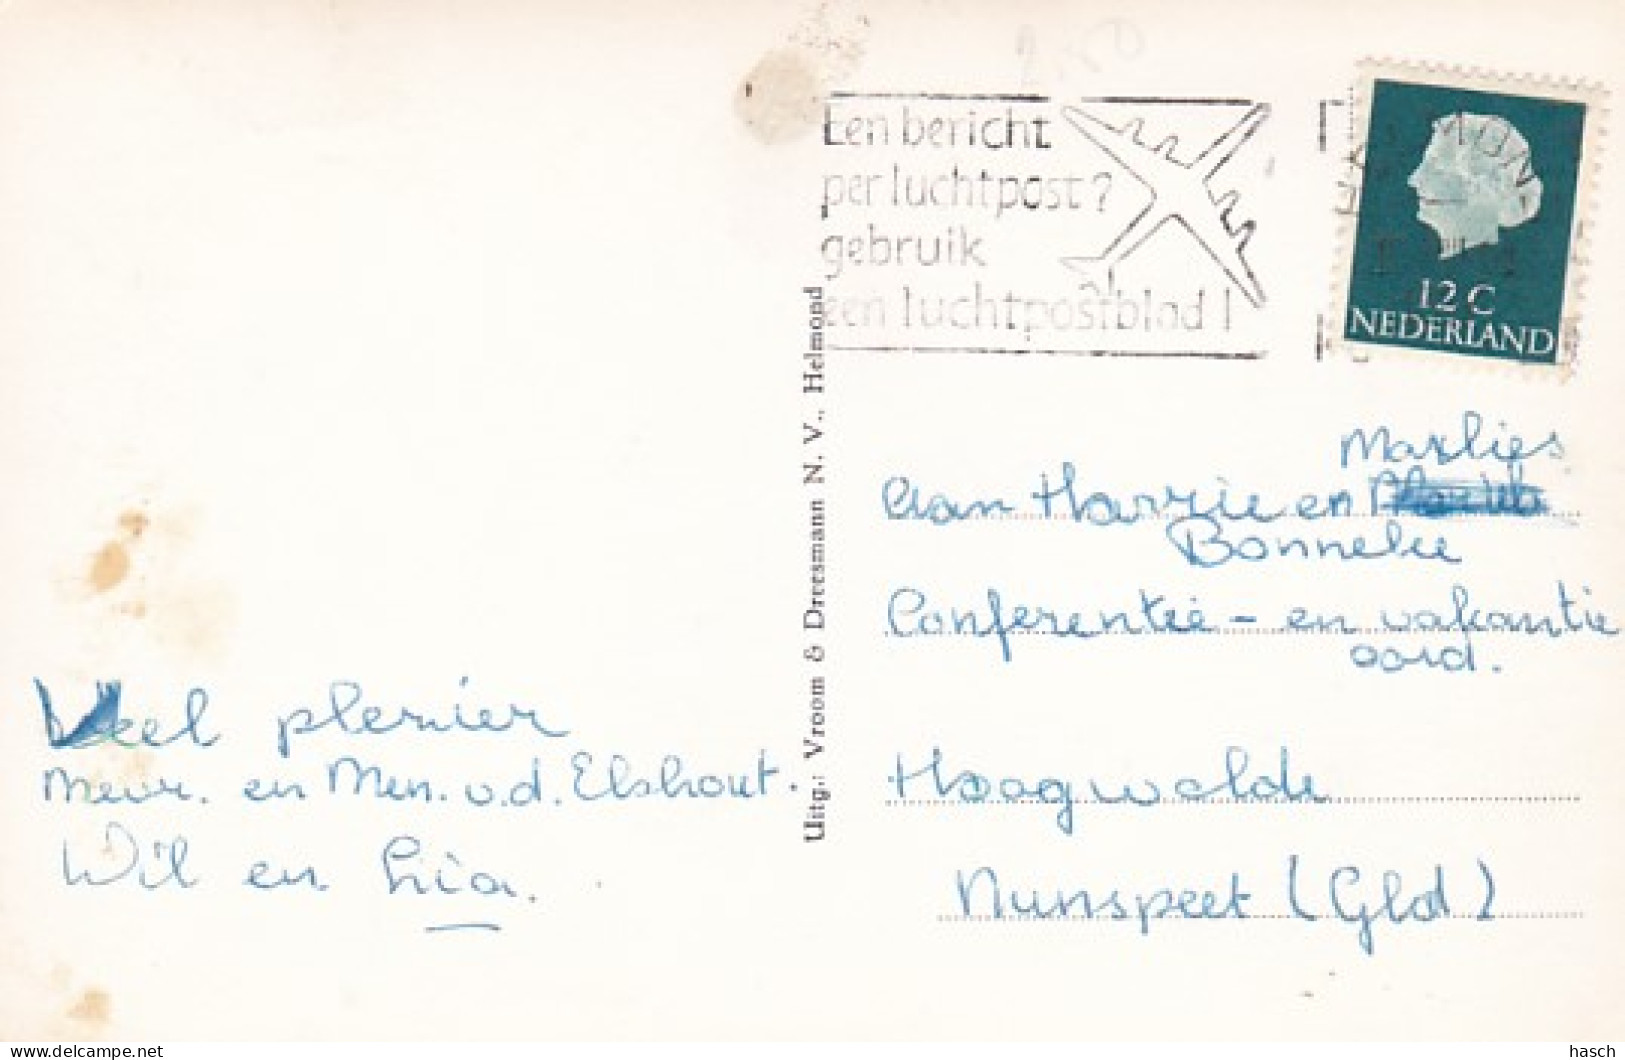 Een bericht
per luchtpost?
gebruik
een luchtpostblad!
12 C
NEDERLAND
Uitg.: Vroom & Dreesmann N. V., Helmond
Marlies
Aan Harrie en
Bonnelie
Conferentie - en vakantie
oord.
Hoogwolde
Nunspeet (Gld)
Veel plezier
Mevr. en Men. v.d. Elshout.
Wil en Lia.
hasch